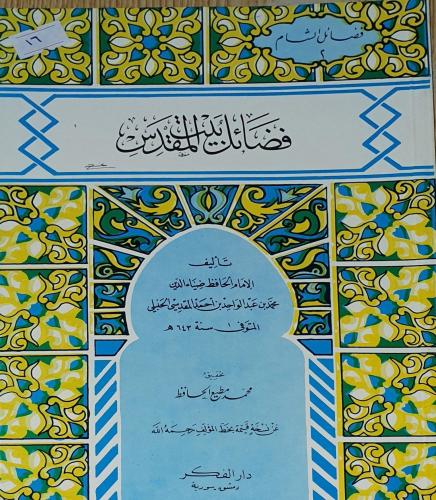 ١٦
فضائل الشام
٢
فضائل بيت المقدس
تأليف
الإمام الحافظ ضياء الدين
محمد بن عبد الواحد بن أحمد المقدسي الحنبلي
المتوفى سنة ٦٤٣ هـ
تحقيق
محمد مطيع الحافظ
عن نسخة قيمة بخط المؤلف رحمه الله
دار الفكر
دمشق - سورية